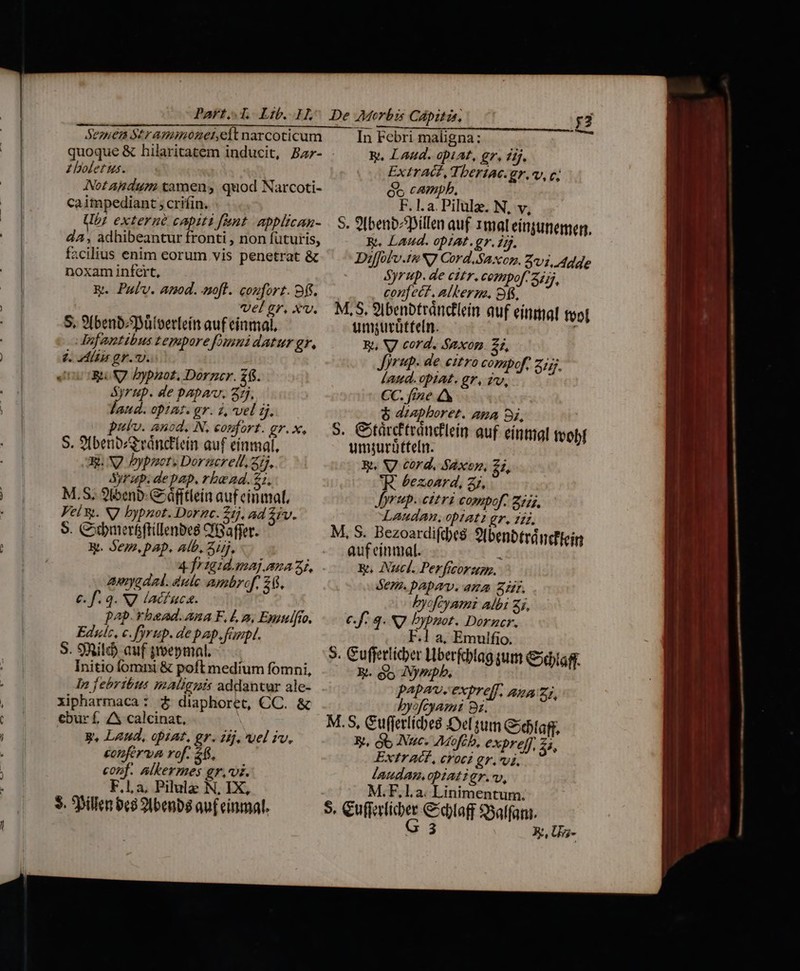 Part. I. Lib. II. De Morbis Capitis. 53
Semen Strammonei, est narcoticum
quoque & hilaritatem inducit, Bar-
tholetus.
Notandum tamen, quod Narcoti-
ca impediant; crisin.
Ubi externè capiti sunt applican-
da, adhibeantur fronti, non suturis,
facilius enim eorum vis penetrat &
noxam infert.
℞. Pulv. anod. nost. confort. ℈ß.
vel gr. xv.
S. Abend-Pülverlein auf einmal.
Infantibus tempore somni datur gr.
i. Aliis gr. v.
℞. 🜄 hypnot. Dorncr. ℥ß.
Syrup. de papav. ʒij.
laud. opiat. gr. i, vel ij.
pulv. anod. N. confort. gr. x.
S. Abend-Träncklein auf einmal.
℞. 🜄 hypnot. Dorncrell. ʒij.
Syrup. de pap. rhœad. ʒi.
M. S. Abend-Säfftlein auf einmal.
Vel ℞. 🜄 hypnot. Dornc. ʒij. ad ʒiv.
S. Schmertzstillendes Wasser.
℞. Sem. pap. alb. ʒiij.
4 frigid. maj. ana ʒi.
amygdal. dulc ambros. ℥ß.
c. s. q. 🜄 lactucæ.
pap. rhœad. ana F. l. a. Emulsio.
Edulc. c. syrup. de pap. simpl.
S. Milch auf zweymal.
Initio somni & post medium somni.
In febribus malignis addantur ale-
xipharmaca: ♁ diaphoret, CC. &
ebur s. 🜂 calcinat.
℞. Laud. opiat. gr. iij. vel iv.
conserva ros. ℥ß.
conf. alkermes gr. vi.
F. l. a. Pilulæ N. IX.
S. Pillen des Abends auf einmal.
In Febri maligna:
℞. Laud. opiat. gr. iij.
Extract. Theriac. gr. v. c.
camph.
F. l. a. Pilulæ. N. v.
S. Abend-Pillen auf 1 mal einzunemen.
℞. Laud. opiat. gr. iij.
Dissolv. in 🜄 Cord. Saxon. ʒvi. Adde
Syrup. de citr. compos. ʒiij.
confect. alkerm. ℈ß.
M. S. Abendträncklein auf einmal wol
umzurütteln.
℞. 🜄 cord. Saxon. ℥i.
syrup. de citro compos. ʒiij.
laud. opiat. gr. iv.
CC. sine 🜂
♁ diaphoret. ana ℈i.
S. Stärcktråncklein auf einmal wohl
umzurütteln.
℞. 🜄 cord. Saxon. ℥i.
bezoard. ʒi.
syrup. citri compos. ʒiii.
Laudan. opiati gr. iii.
M. S. Bezoardisches Abendträncklein
auf einmal.
℞. Nucl. Persicorum.
Sem. papav. ana ʒiii.
hyoscyami albi ʒi.
c. s. q. 🜄 hypnot. Dorncr.
F. l a. Emulsio.
S. Eusserlicher Uberschlag zum Schlaff.
℞. Nymph.
papav. express. ana ʒi.
hyoscyami ℈i.
M. S. Eusserliches Oel zum Schlaff.
℞. Nuc. Mosch. express. ʒi.
Extract. croci gr. vi.
laudan. opiati gr. v.
M. F. l. a. Linimentum.
S. Eusserlicher Schlaff Balsam.
G 3 ℞. Un-